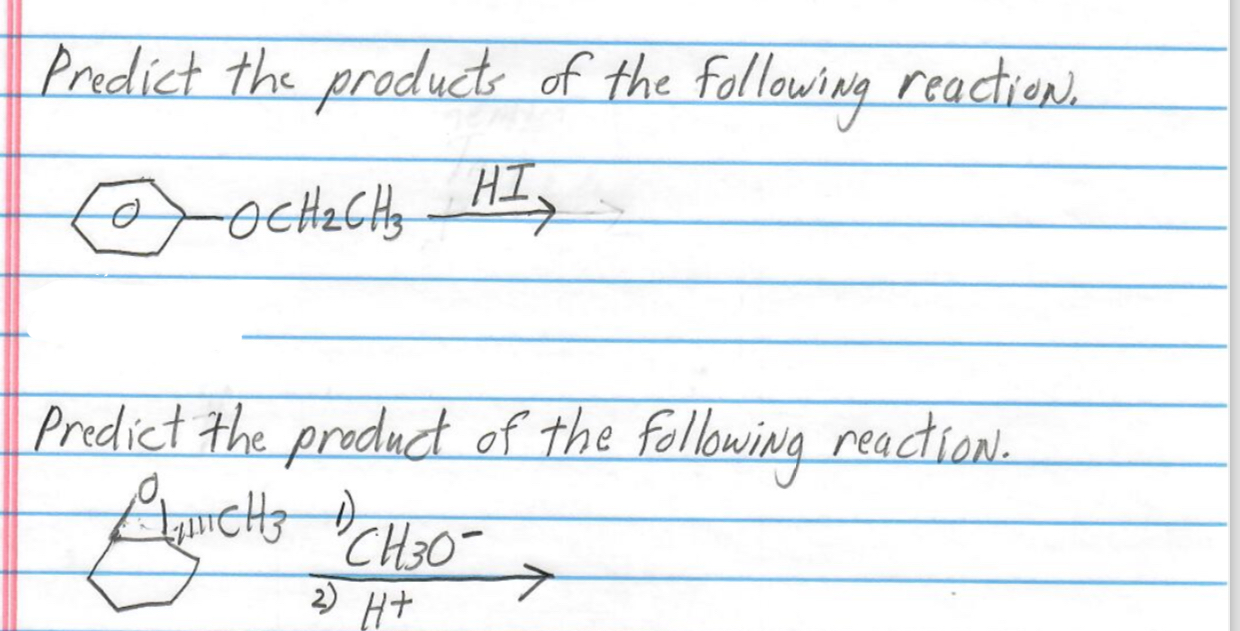 Predict the products of the following reaction.
OCH2CH3 HI
Predict the product of the following reaction.
O
CH3 1) CH3O-
2) H+